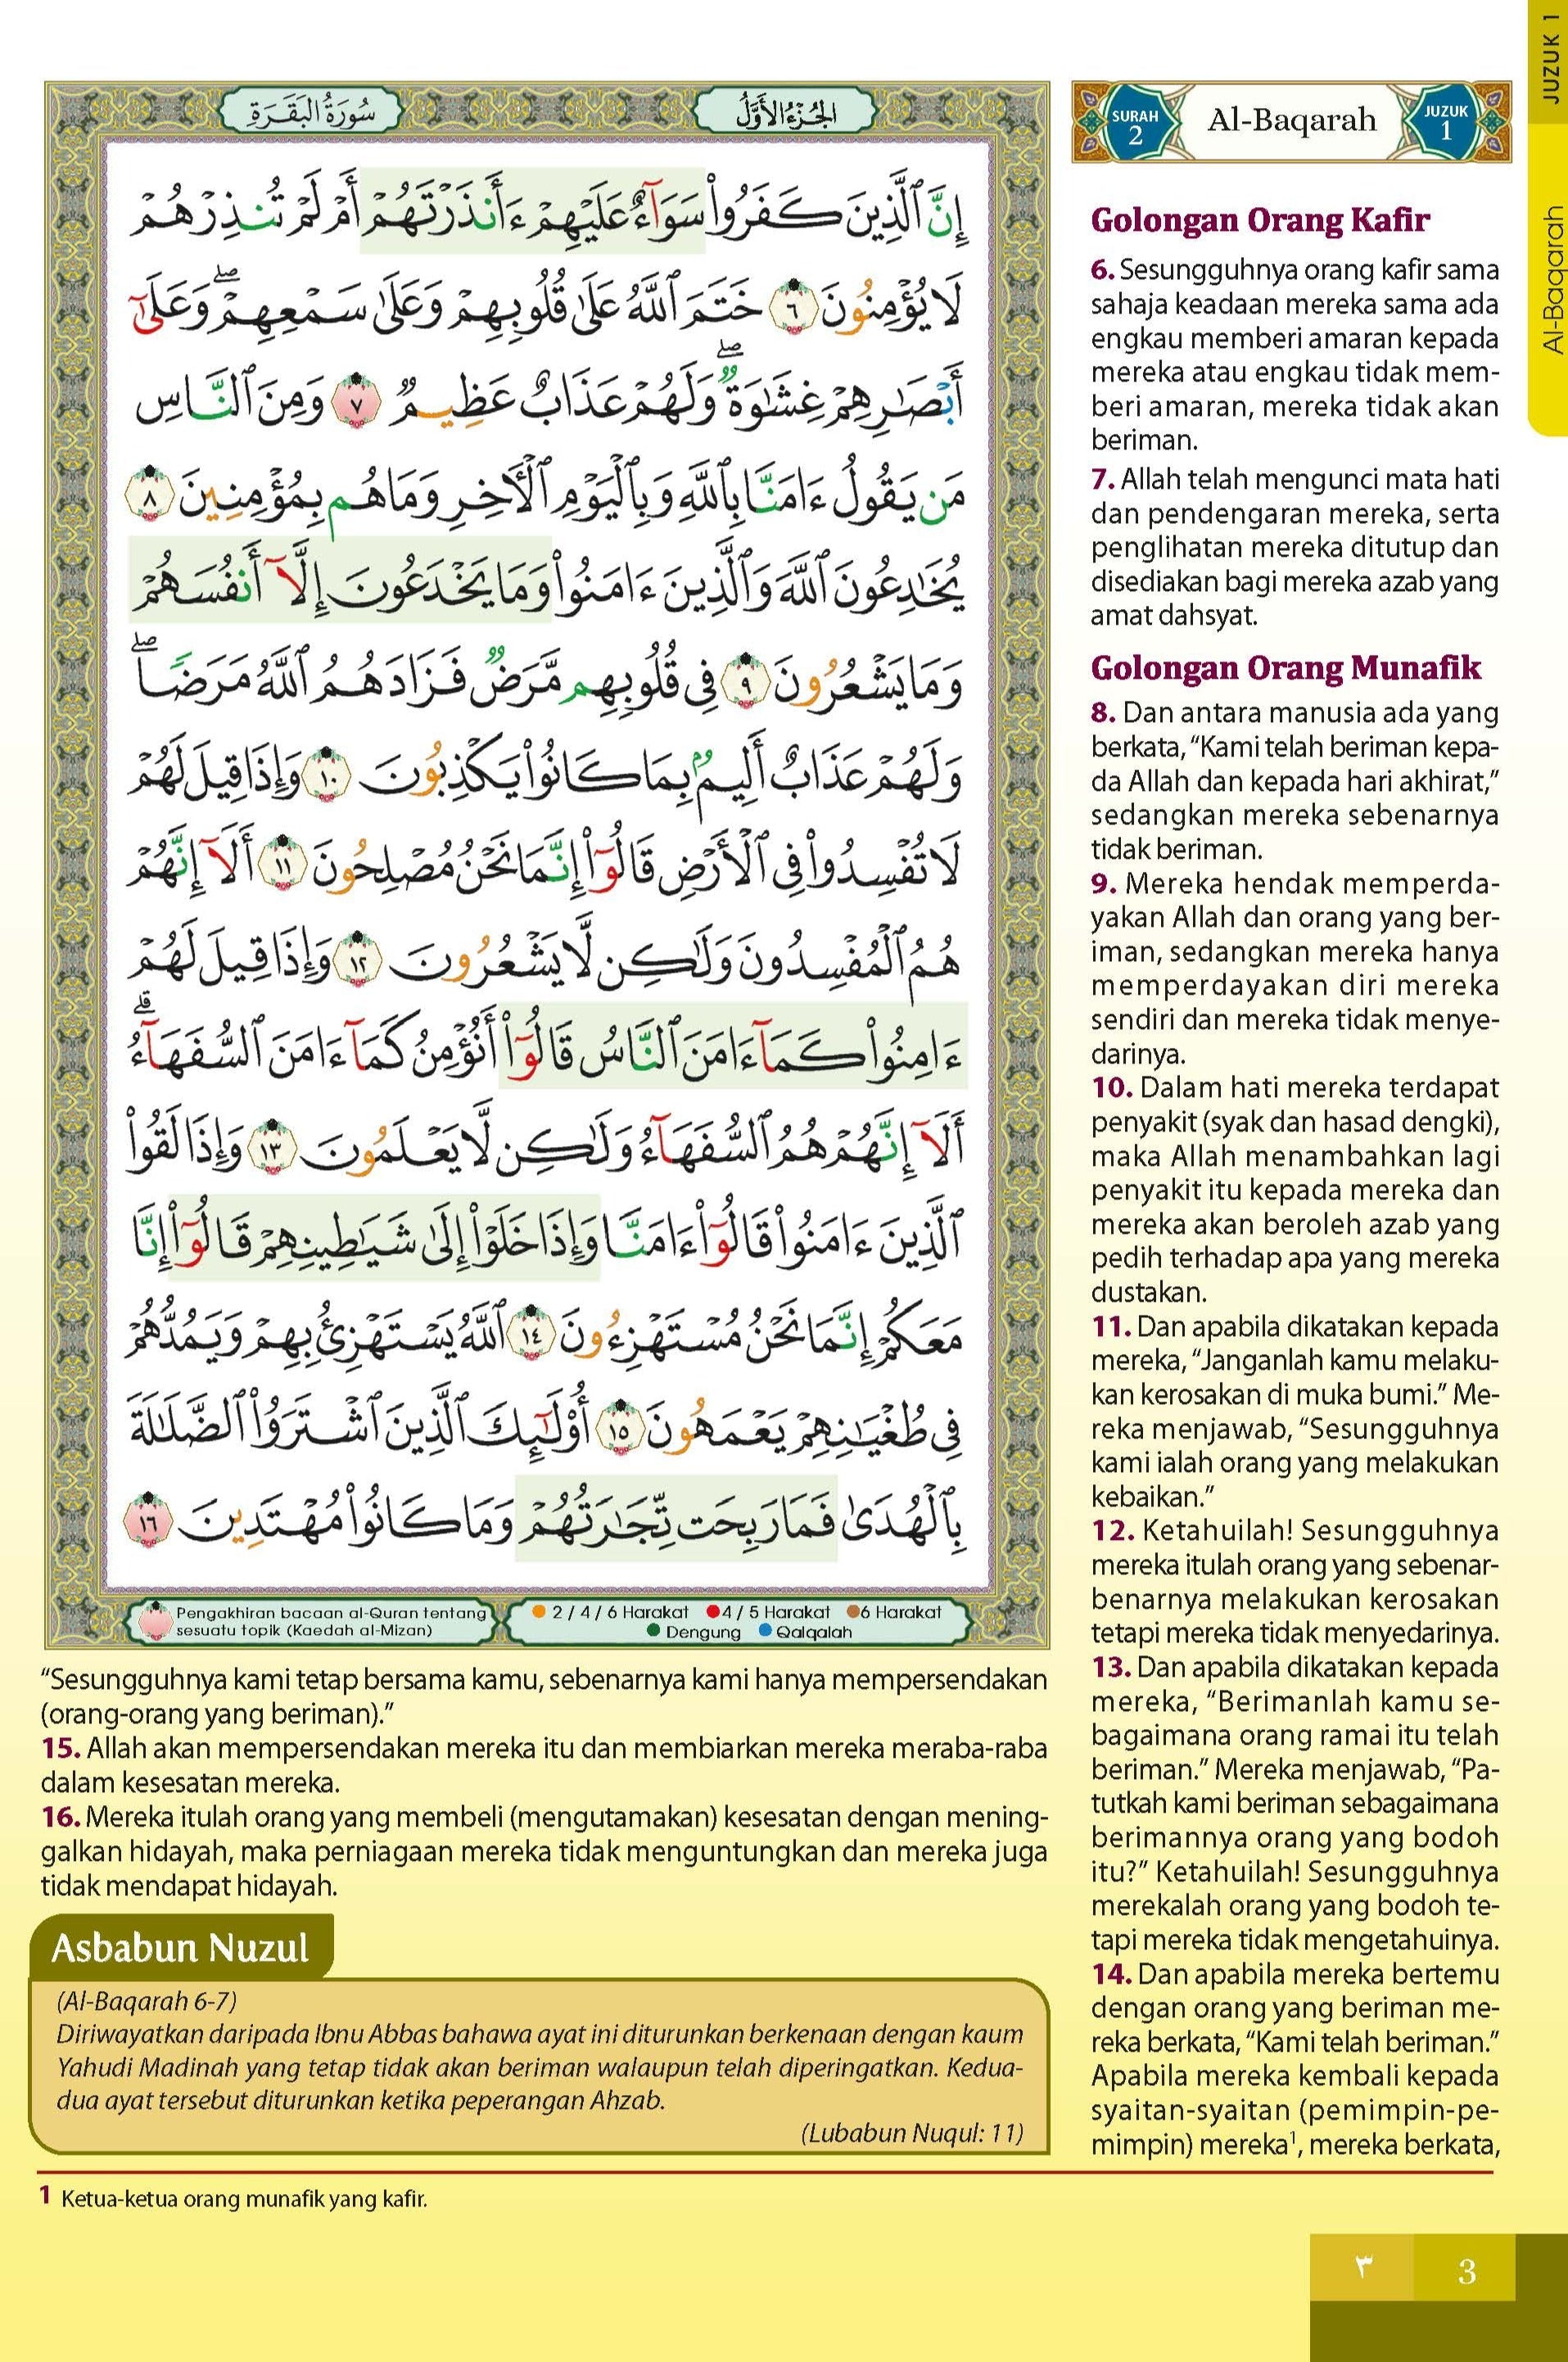 JUZUK 1
Al-Baqarah
سُورَةُ الْبَقَرَةِ
الجُزْءُ الأَوَّلُ
إِنَّ ٱلَّذِينَ كَفَرُوا۟ سَوَآءٌ عَلَيْهِمْ ءَأَنذَرْتَهُمْ أَمْ لَمْ تُنذِرْهُمْ
لَا يُؤْمِنُونَ ٦ خَتَمَ ٱللَّهُ عَلَىٰ قُلُوبِهِمْ وَعَلَىٰ سَمْعِهِمْ ۖ وَعَلَىٰٓ
أَبْصَـٰرِهِمْ غِشَـٰوَةٌ ۖ وَلَهُمْ عَذَابٌ عَظِيمٌ ٧ وَمِنَ ٱلنَّاسِ
مَن يَقُولُ ءَامَنَّا بِٱللَّهِ وَبِٱلْيَوْمِ ٱلْـَٔاخِرِ وَمَا هُم بِمُؤْمِنِينَ ٨
يُخَـٰدِعُونَ ٱللَّهَ وَٱلَّذِينَ ءَامَنُوا۟ وَمَا يَخْدَعُونَ إِلَّآ أَنفُسَهُمْ
وَمَا يَشْعُرُونَ ٩ فِى قُلُوبِهِم مَّرَضٌ فَزَادَهُمُ ٱللَّهُ مَرَضًا ۖ
وَلَهُمْ عَذَابٌ أَلِيمٌۢ بِمَا كَانُوا۟ يَكْذِبُونَ ١٠ وَإِذَا قِيلَ لَهُمْ
لَا تُفْسِدُوا۟ فِى ٱلْأَرْضِ قَالُوٓا۟ إِنَّمَا نَحْنُ مُصْلِحُونَ ١١ أَلَآ إِنَّهُمْ
هُمُ ٱلْمُفْسِدُونَ وَلَـٰكِن لَّا يَشْعُرُونَ ١٢ وَإِذَا قِيلَ لَهُمْ
ءَامِنُوا۟ كَمَآ ءَامَنَ ٱلنَّاسُ قَالُوٓا۟ أَنُؤْمِنُ كَمَآ ءَامَنَ ٱلسُّفَهَآءُ ۗ
أَلَآ إِنَّهُمْ هُمُ ٱلسُّفَهَآءُ وَلَـٰكِن لَّا يَعْلَمُونَ ١٣ وَإِذَا لَقُوا۟
ٱلَّذِينَ ءَامَنُوا۟ قَالُوٓا۟ ءَامَنَّا وَإِذَا خَلَوْا۟ إِلَىٰ شَيَـٰطِينِهِمْ قَالُوٓا۟ إِنَّا
مَعَكُمْ إِنَّمَا نَحْنُ مُسْتَهْزِءُونَ ١٤ ٱللَّهُ يَسْتَهْزِئُ بِهِمْ وَيَمُدُّهُمْ
فِى طُغْيَـٰنِهِمْ يَعْمَهُونَ ١٥ أُو۟لَـٰٓئِكَ ٱلَّذِينَ ٱشْتَرَوُا۟ ٱلضَّلَـٰلَةَ
بِٱلْهُدَىٰ فَمَا رَبِحَت تِّجَـٰرَتُهُمْ وَمَا كَانُوا۟ مُهْتَدِينَ ١٦
Pengakhiran bacaan al-Quran tentang
sesuatu topik (Kaedah al-Mizan)
2 / 4 / 6 Harakat 4 / 5 Harakat 6 Harakat
Dengung Qalqalah
SURAH
2
Al-Baqarah
JUZUK
1
Golongan Orang Kafir
6. Sesungguhnya orang kafir sama
sahaja keadaan mereka sama ada
engkau memberi amaran kepada
mereka atau engkau tidak mem-
beri amaran, mereka tidak akan
beriman.
7. Allah telah mengunci mata hati
dan pendengaran mereka, serta
penglihatan mereka ditutup dan
disediakan bagi mereka azab yang
amat dahsyat.
Golongan Orang Munafik
8. Dan antara manusia ada yang
berkata, “Kami telah beriman kepa-
da Allah dan kepada hari akhirat,”
sedangkan mereka sebenarnya
tidak beriman.
9. Mereka hendak memperda-
yakan Allah dan orang yang ber-
iman, sedangkan mereka hanya
memperdayakan diri mereka
sendiri dan mereka tidak menye-
darinya.
10. Dalam hati mereka terdapat
penyakit (syak dan hasad dengki),
maka Allah menambahkan lagi
penyakit itu kepada mereka dan
mereka akan beroleh azab yang
pedih terhadap apa yang mereka
dustakan.
11. Dan apabila dikatakan kepada
mereka, “Janganlah kamu melaku-
kan kerosakan di muka bumi.” Me-
reka menjawab, “Sesungguhnya
kami ialah orang yang melakukan
kebaikan.”
12. Ketahuilah! Sesungguhnya
mereka itulah orang yang sebenar-
benarnya melakukan kerosakan
tetapi mereka tidak menyedarinya.
13. Dan apabila dikatakan kepada
mereka, “Berimanlah kamu se-
bagaimana orang ramai itu telah
beriman.” Mereka menjawab, “Pa-
tutkah kami beriman sebagaimana
berimannya orang yang bodoh
itu?” Ketahuilah! Sesungguhnya
merekalah orang yang bodoh te-
tapi mereka tidak mengetahuinya.
14. Dan apabila mereka bertemu
dengan orang yang beriman me-
reka berkata, “Kami telah beriman.”
Apabila mereka kembali kepada
syaitan-syaitan (pemimpin-pe-
mimpin) mereka¹, mereka berkata,
“Sesungguhnya kami tetap bersama kamu, sebenarnya kami hanya mempersendakan
(orang-orang yang beriman).”
15. Allah akan mempersendakan mereka itu dan membiarkan mereka meraba-raba
dalam kesesatan mereka.
16. Mereka itulah orang yang membeli (mengutamakan) kesesatan dengan mening-
galkan hidayah, maka perniagaan mereka tidak menguntungkan dan mereka juga
tidak mendapat hidayah.
Asbabun Nuzul
(Al-Baqarah 6-7)
Diriwayatkan daripada Ibnu Abbas bahawa ayat ini diturunkan berkenaan dengan kaum
Yahudi Madinah yang tetap tidak akan beriman walaupun telah diperingatkan. Kedua-
dua ayat tersebut diturunkan ketika peperangan Ahzab.
(Lubabun Nuqul: 11)
1 Ketua-ketua orang munafik yang kafir.
٣ 3